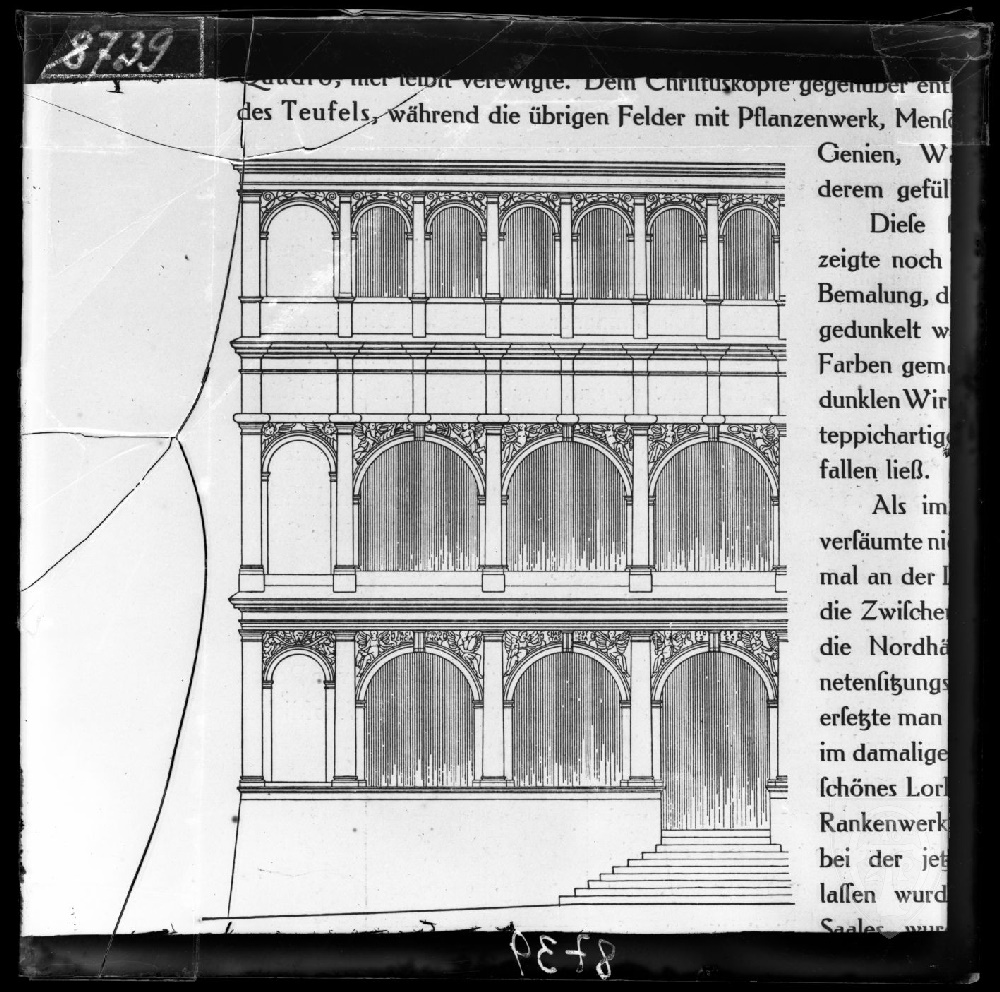 8739
Quadro, hier leibſt verewigte. Dem Chriſtuskopfe gegenüber ent
des Teufels, während die übrigen Felder mit Pflanzenwerk, Menſc
Genien, W
derem gefül
Dieſe
zeigte noch
Bemalung, d
gedunkelt w
Farben gem
dunklen Wir
teppichartig
fallen ließ.
Als im
verſäumte ni
mal an der
die Zwiſche
die Nordhä
netenſitzungs
erſetzte man
im damalige
ſchönes Lor
Rankenwerk
bei der jetz
laſſen wurd
Saales wur
8739